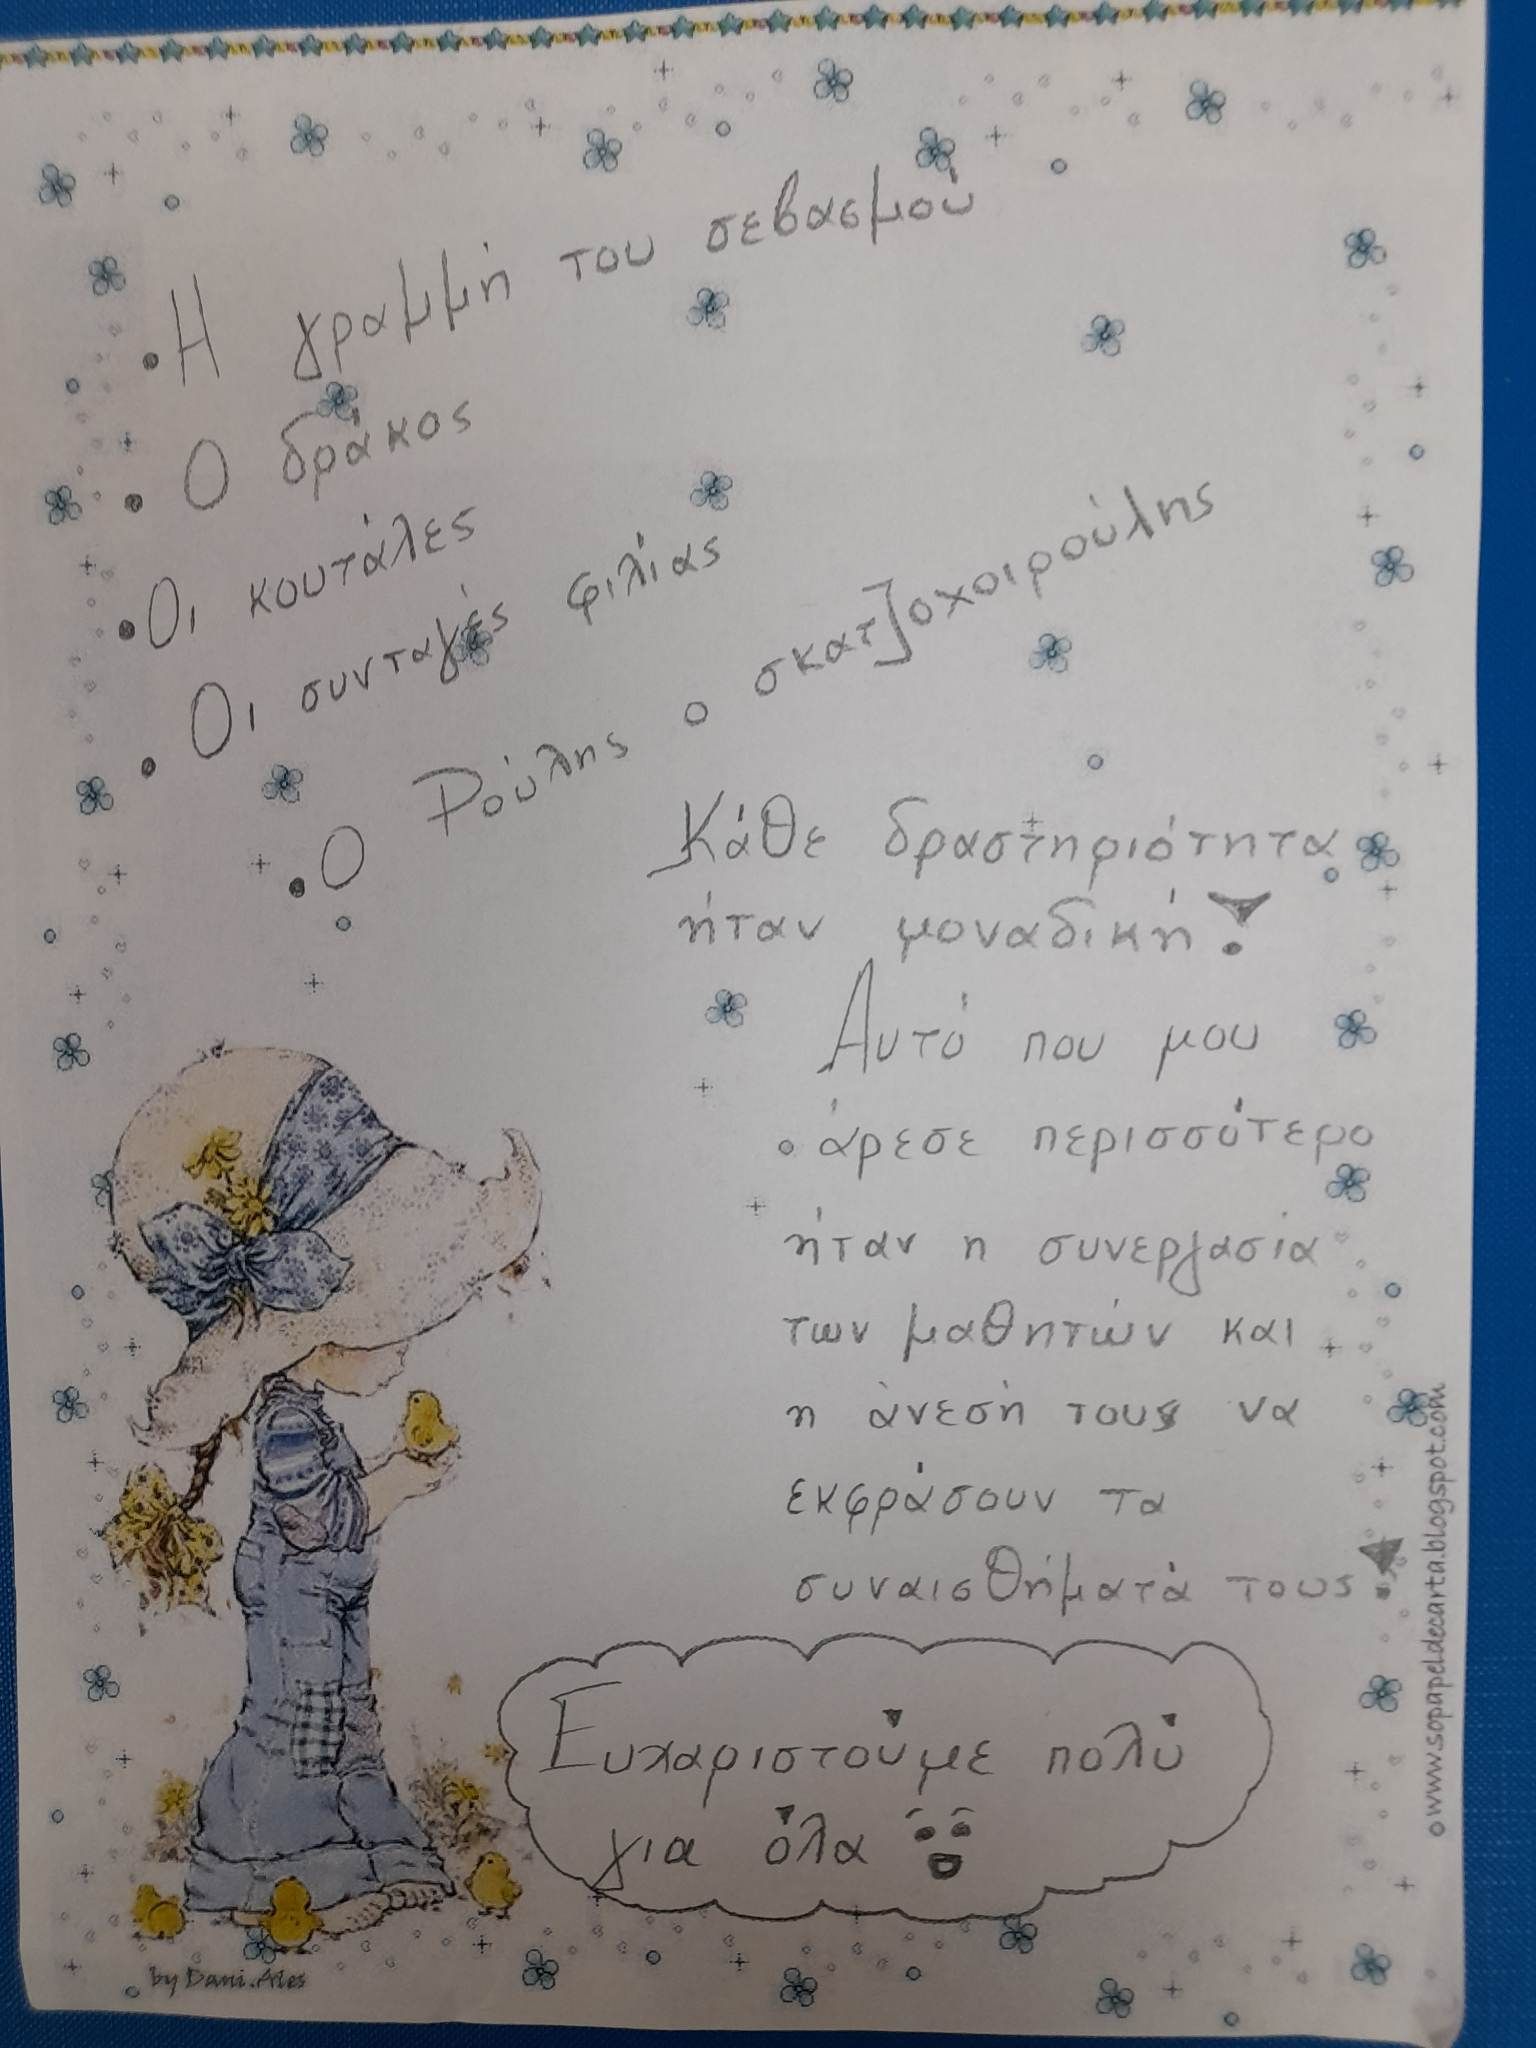 • Η γραμμή του σεβασμού
• Ο δράκος
• Οι κουτάλες
• Οι συνταγές φιλίας
• Ο Ρούλης ο σκατζοχοιρούλης
Κάθε δραστηριότητα
ήταν μοναδική!
Αυτό που μου
άρεσε περισσότερο
ήταν η συνεργασία
των μαθητών και
η άνεσή τους να
εκφράσουν τα
συναισθήματά τους!
Ευχαριστούμε πολύ
για όλα
by Dani.Ales
©www.sopapeldecarta.blogspot.com